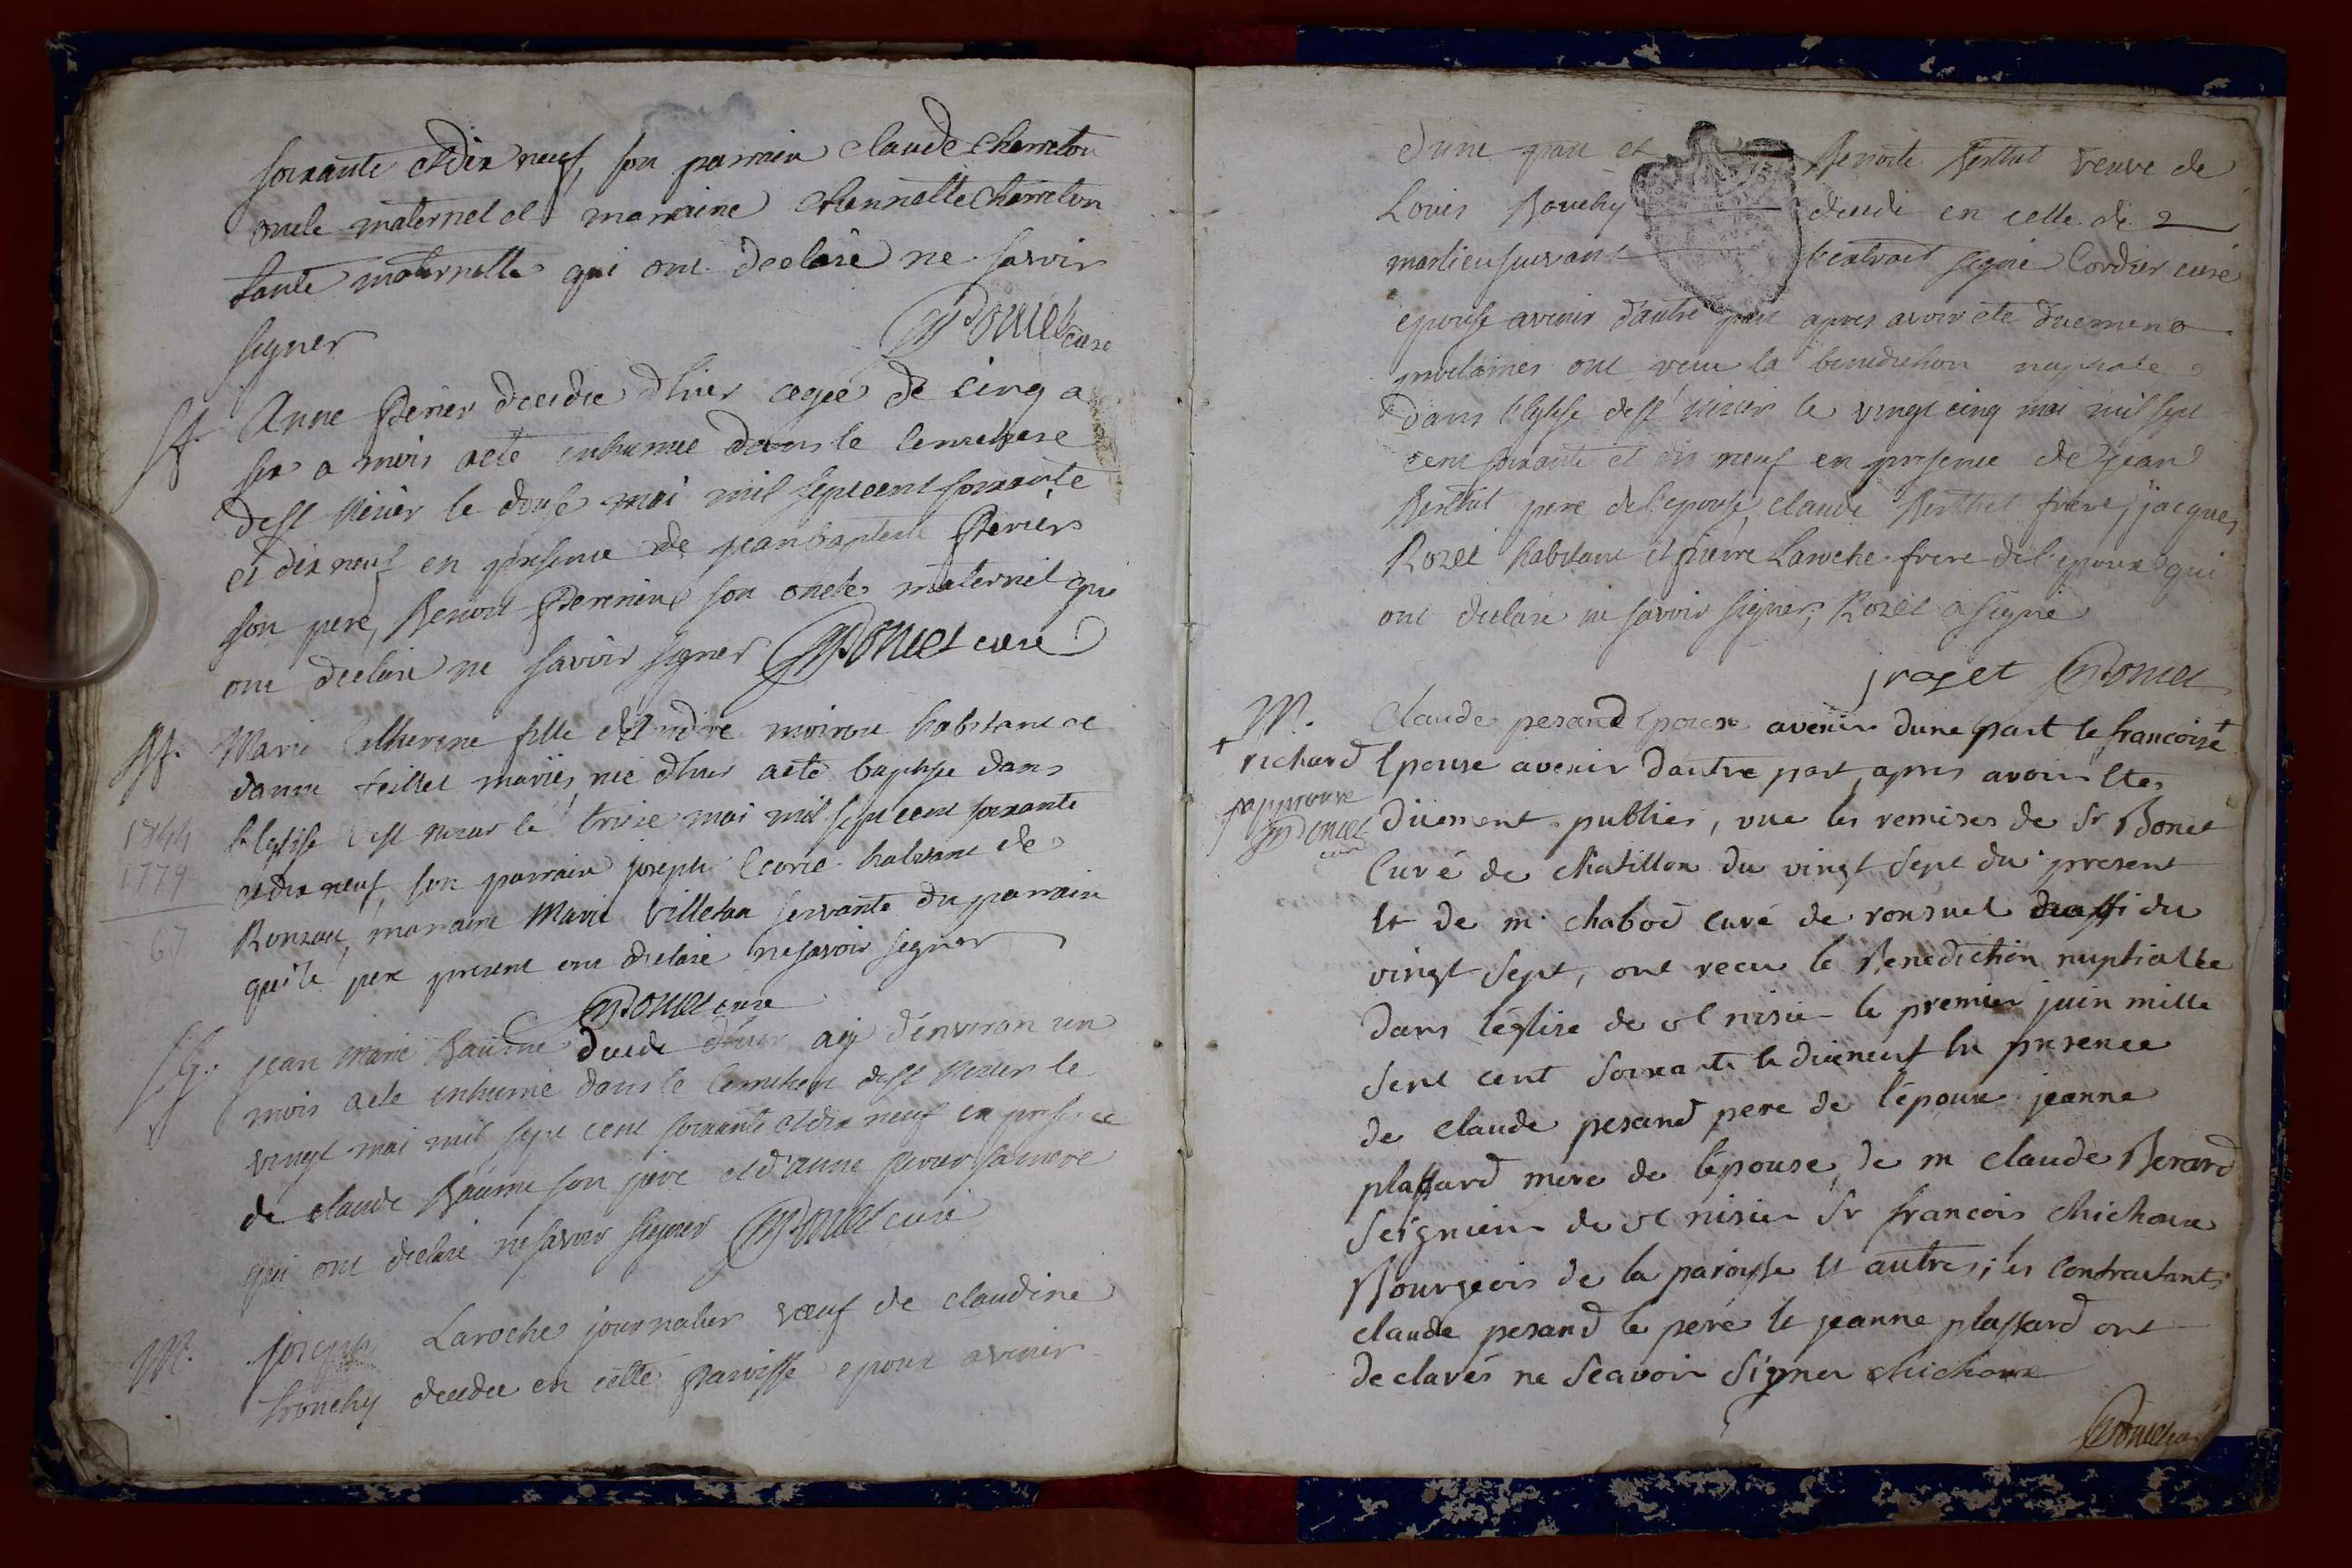 soixante et dix neuf, son parrain claude cherreton
oncle maternel et marraine etiennette cherreton
tante maternelle qui ont declaré ne savoir
signer
Doncet curé
St. Anne Perier decedée d'hier agée de cinq a
six mois a eté inhumée dans le cemetiere
de st Nizier le douse mai mil sept cent soixante
et dix neuf en presence de jean baptiste Perier
son pere, Benoit son oncle maternel qui
ont declaré ne savoir signer Doncet curé
Marie Catherine fille d'Andre moiroux habitant et
danne teillet mariés, née d'hier a eté baptisé dans
l'eglise de st nizier le treize mai mil sept cent soixante
et dix neuf, son parrain joseph habitant de
Ronzuel, marraine Marie Villetan servante du parrain
qui le pere present ont declaré ne savoir signer
Doncet curé
1844
1779
67
jean Marie Baume decedé d'hier agé d'environ un
mois a eté inhumé dans le cemetiere de st Nizier le
vingt mai mil sept cent soixante et dix neuf en presence
de claude Baume son pere et d'anne perier sa mere
qui ont declaré ne savoir signer Doncet curé
M. joseph Laroche journalier veuf de claudine
trouchy decedée en cette Paroisse epoux avenir
d'une part et Benoite Berthet veuve de
Louis Bouchy decedé en celle de
marlieu suivant l'extrait signé Cordier curé
epouse avenir d'autre part apres avoir eté duement
proclamés ont recu la benediction nuptiale
dans l'eglise de st Nizier le vingt cinq mai mil sept
cent soixante et dix neuf en presence de jean
Berthet pere de l'epouse, claude Berthet frere, jacques
Rozet habitant et pierre Laroche frere de l'epoux qui
ont declaré ne savoir signer, Rozet a signé
j rozet Doncet
M. Claude pesand Epoux avenir dune part et francoise +
+ richard Epouse avenir dautre part, apres avoir etes
japprouve
Doncet
curé
duement publiés, vue les remises de Sr Bonet
Curé de chatillon du vingt sept du present
et de mr chabod curé de ronzuel aussi du
vingt sept, ont recu le Benediction nuptialle
dans l'eglise de st nisier le premier juin mille
sent cent soixante et dixneuf En presence
de claude pesand pere de l'époux jeanne
plassard mere de l'épouse, de m claude Berard
Seignieur de st nisier Sr francois chichoux
Bourgeois de la paroysse et autres; les Contractants
claude pesand le pere et jeanne plassard ont
declarés ne Scavoir Signer chichoux
Doncet curé